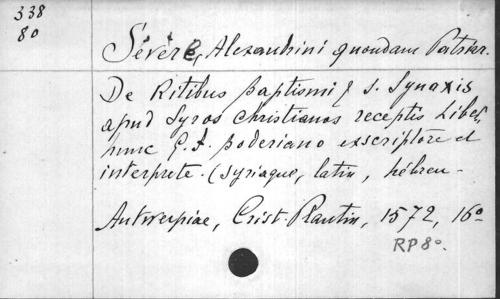 338
80
Sévère, Alexandrini quondam Patriar.
De Ritibus baptismi & S. Synaxis
apud Syros Christianos receptis Liber
nunc G. F. Boderiano exscriptore et
interprete. (Syriaque, latin, hébreu -
Antwerpiae, Crist. Plantin, 1572, 16º
RP 8º.